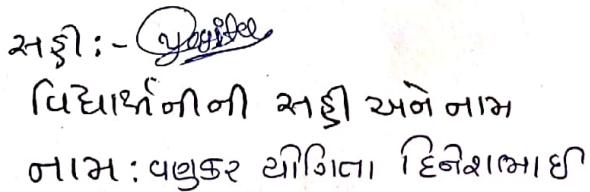 સહી :- Yogita
વિદ્યાર્થીનીની સહી અને નામ
નામ : વણકર યોગિતા દિનેશભાઈ